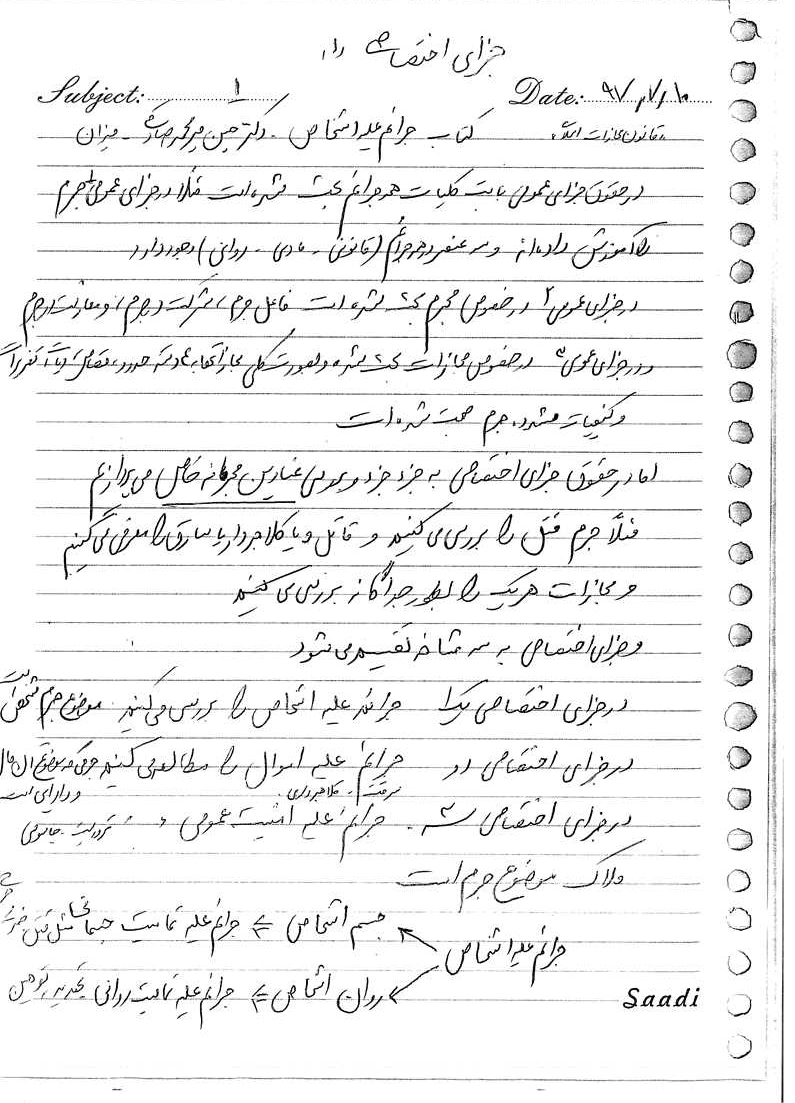 جزای اختصاصی (۱)
Subject: ۱ Date: ۹۷٫۷٫۱۰
کتاب جرائم علیه اشخاص - دکتر حسین میرمحمدصادقی - میزان
قانون مجازات اسلامی
در حقوق جزای عمومی بابت کلیات هر جرائم بحث شده است مثلا در جزای عمومی ۱ جرم
را آموزش داده‌اند و سه عنصر در هر جرائم (قانونی - مادی - روانی) وجود دارد
در جزای عمومی ۲ در خصوص مجرم بحث شده است فاعل جرم، شرکت در جرم، و معاونت در جرم
و در جزای عمومی ۳ در خصوص مجازات بحث شده و بصورت کلی مجازاتها به ۴ دسته حدود، قصاص، دیات، تعزیرات
و کیفیات مشدده جرم صحبت شده است
اما در حقوق جزای اختصاصی به جزء جزء و بررسی عناوین مجرمانه خاص می پردازیم
مثلاً جرم قتل را بررسی می کنیم و قاتل و یا کلاهبردار یا سارق را معرفی می کنیم
و مجازات هر یک را بطور جداگانه بررسی می کنیم
و جزای اختصاصی به سه شاخه تقسیم می شود
در جزای اختصاصی یک جرائم علیه اشخاص را بررسی می کنیم موضوع جرم شخص است
در جزای اختصاصی دو جرائم علیه اموال را مطالعه می کنیم جرمی که موضوع آن مال
سرقت - کلاهبرداری و دارایی است
در جزای اختصاصی سه - جرائم علیه امنیت عمومی تروریست - جاسوسی
ملاک موضوع جرم است
جرائم علیه اشخاص
جسم اشخاص ⇐ جرائم علیه تمامیت جسمانی مثل قتل ضرب
روان اشخاص ⇐ جرائم علیه تمامیت روانی تهدید، توهین
Saadi